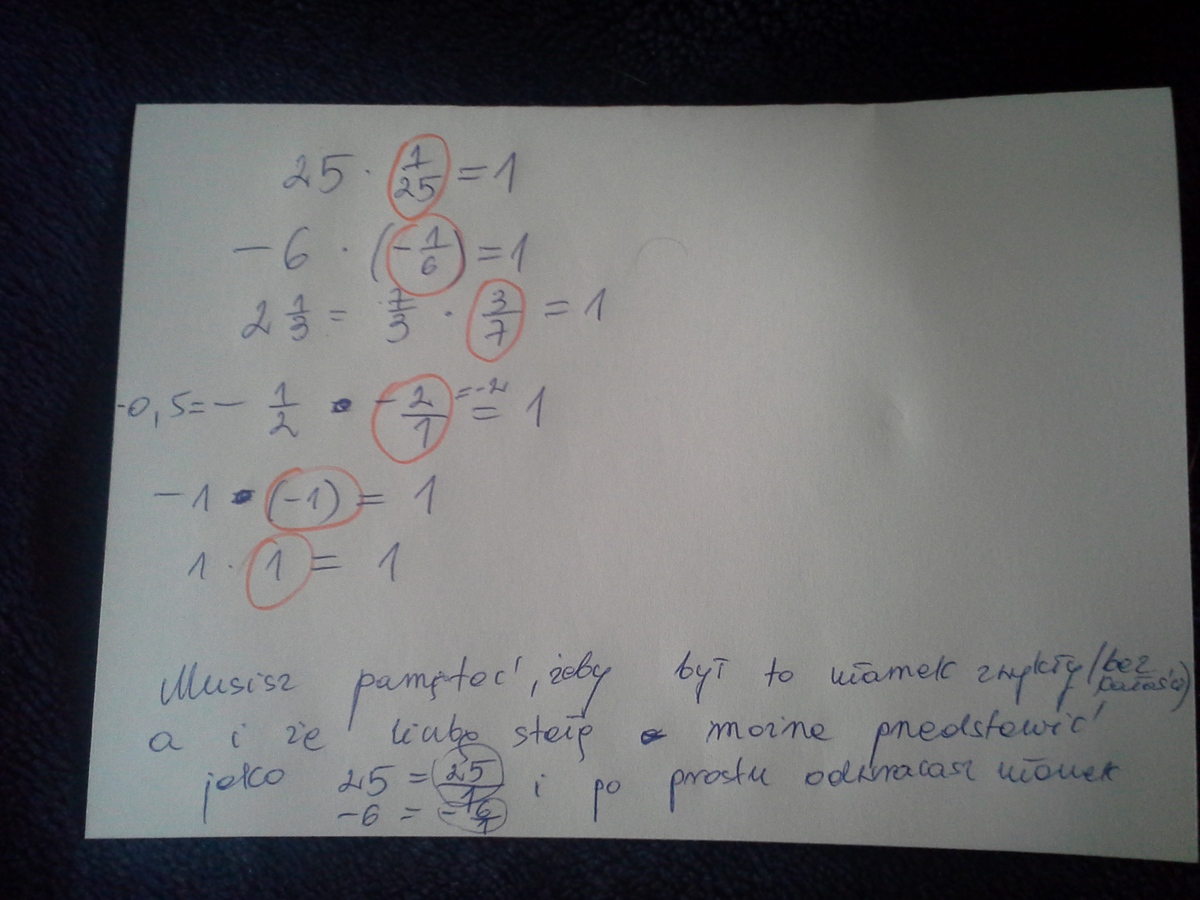 25 · 1/25 = 1
-6 · (-1/6) = 1
2 1/3 = 7/3 · 3/7 = 1
-0,5 = - 1/2 · - 2/1 =-2 = 1
-1 · (-1) = 1
1 · 1 = 1
Musisz pamiętać, żeby był to ułamek zwykły (bez całości)
a i że liczbę stałą można przedstawić
jako 25 = 25/1 i po prostu odwracasz ułamek
-6 = -6/1